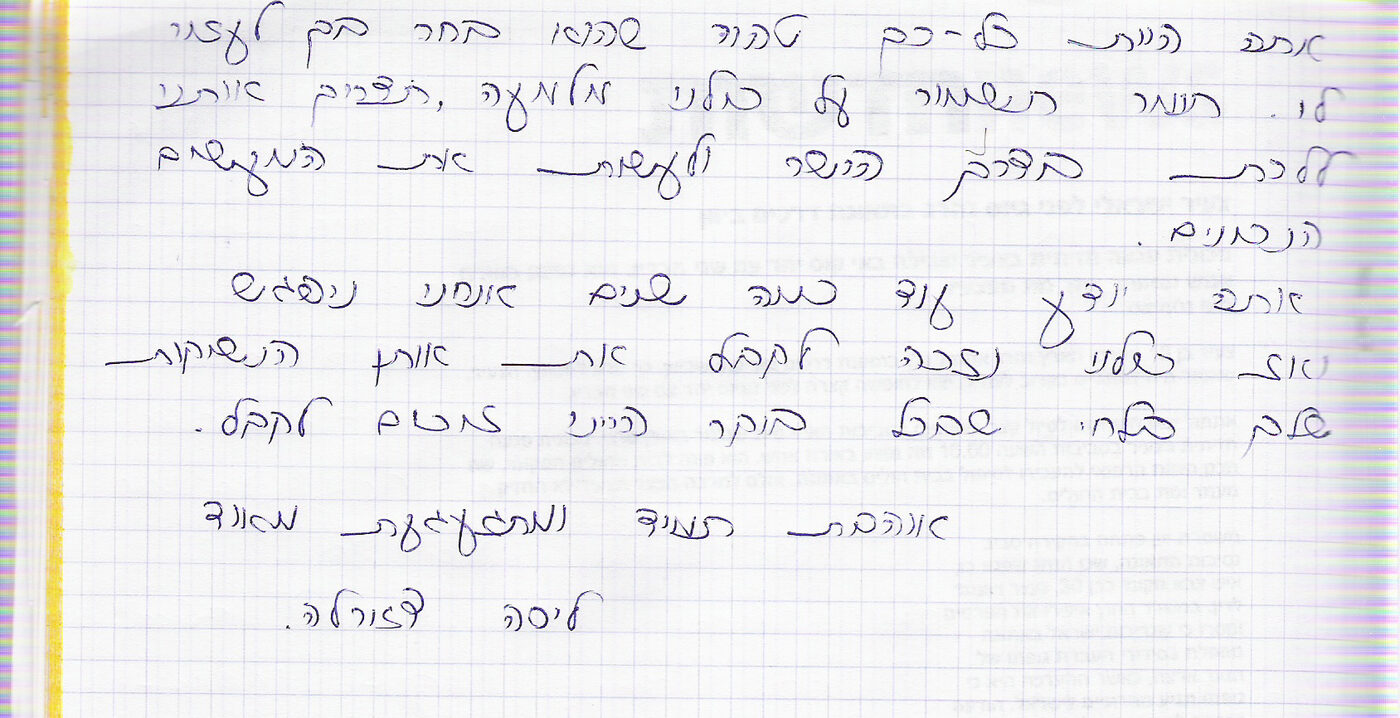 אתה היית כל-כך טהור שהוא בחר בך לעזור
לו. תומר תשמור על כולנו מלמעה, תדריך אותנו
ללכת בדרך הישר ולעשות את המעשים
הנכונים.
אתה יודע עוד כמה שנים אנחנו ניפגש
ואז כולנו נזכה לקבל את אותן הנשיקות
שלך בלחי שבכל בוקר היינו זוכים לקבל.
אוהבת תמיד ומתגעגעת מאוד
ליסה דזורלה.